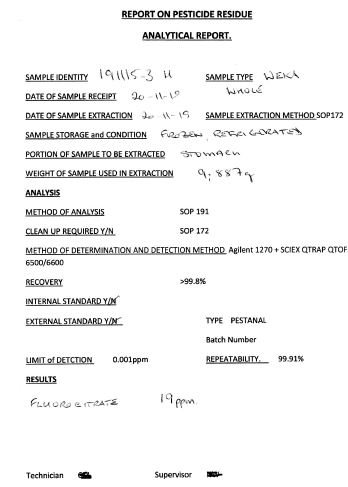 REPORT ON PESTICIDE RESIDUE
ANALYTICAL REPORT.
SAMPLE IDENTITY 191115-3 H SAMPLE TYPE WEKA WHOLE
DATE OF SAMPLE RECEIPT 20-11-19
DATE OF SAMPLE EXTRACTION 20-11-19 SAMPLE EXTRACTION METHOD SOP172
SAMPLE STORAGE and CONDITION FROZEN, REFRIGERATED
PORTION OF SAMPLE TO BE EXTRACTED STOMACH
WEIGHT OF SAMPLE USED IN EXTRACTION 9.887g
ANALYSIS
METHOD OF ANALYSIS SOP 191
CLEAN UP REQUIRED Y/N SOP 172
METHOD OF DETERMINATION AND DETECTION METHOD Agilent 1270 + SCIEX QTRAP QTOF
6500/6600
RECOVERY >99.8%
INTERNAL STANDARD Y/N
EXTERNAL STANDARD Y/N TYPE PESTANAL
Batch Number
LIMIT of DETCTION 0.001ppm REPEATABILITY. 99.91%
RESULTS
FLUOROCITRATE 19 ppm.
Technician Supervisor